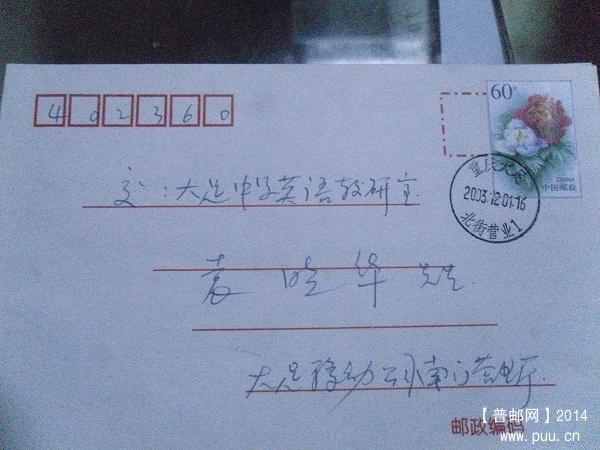 402360
60分
CHINA
中国邮政
重庆大足
2003.12.01.16
北街营业1
交:大足中学英语教研室
袁晓华 先生
大足移动公司南门营业厅.
邮政编码
【普邮网】2014
www.puu.cn